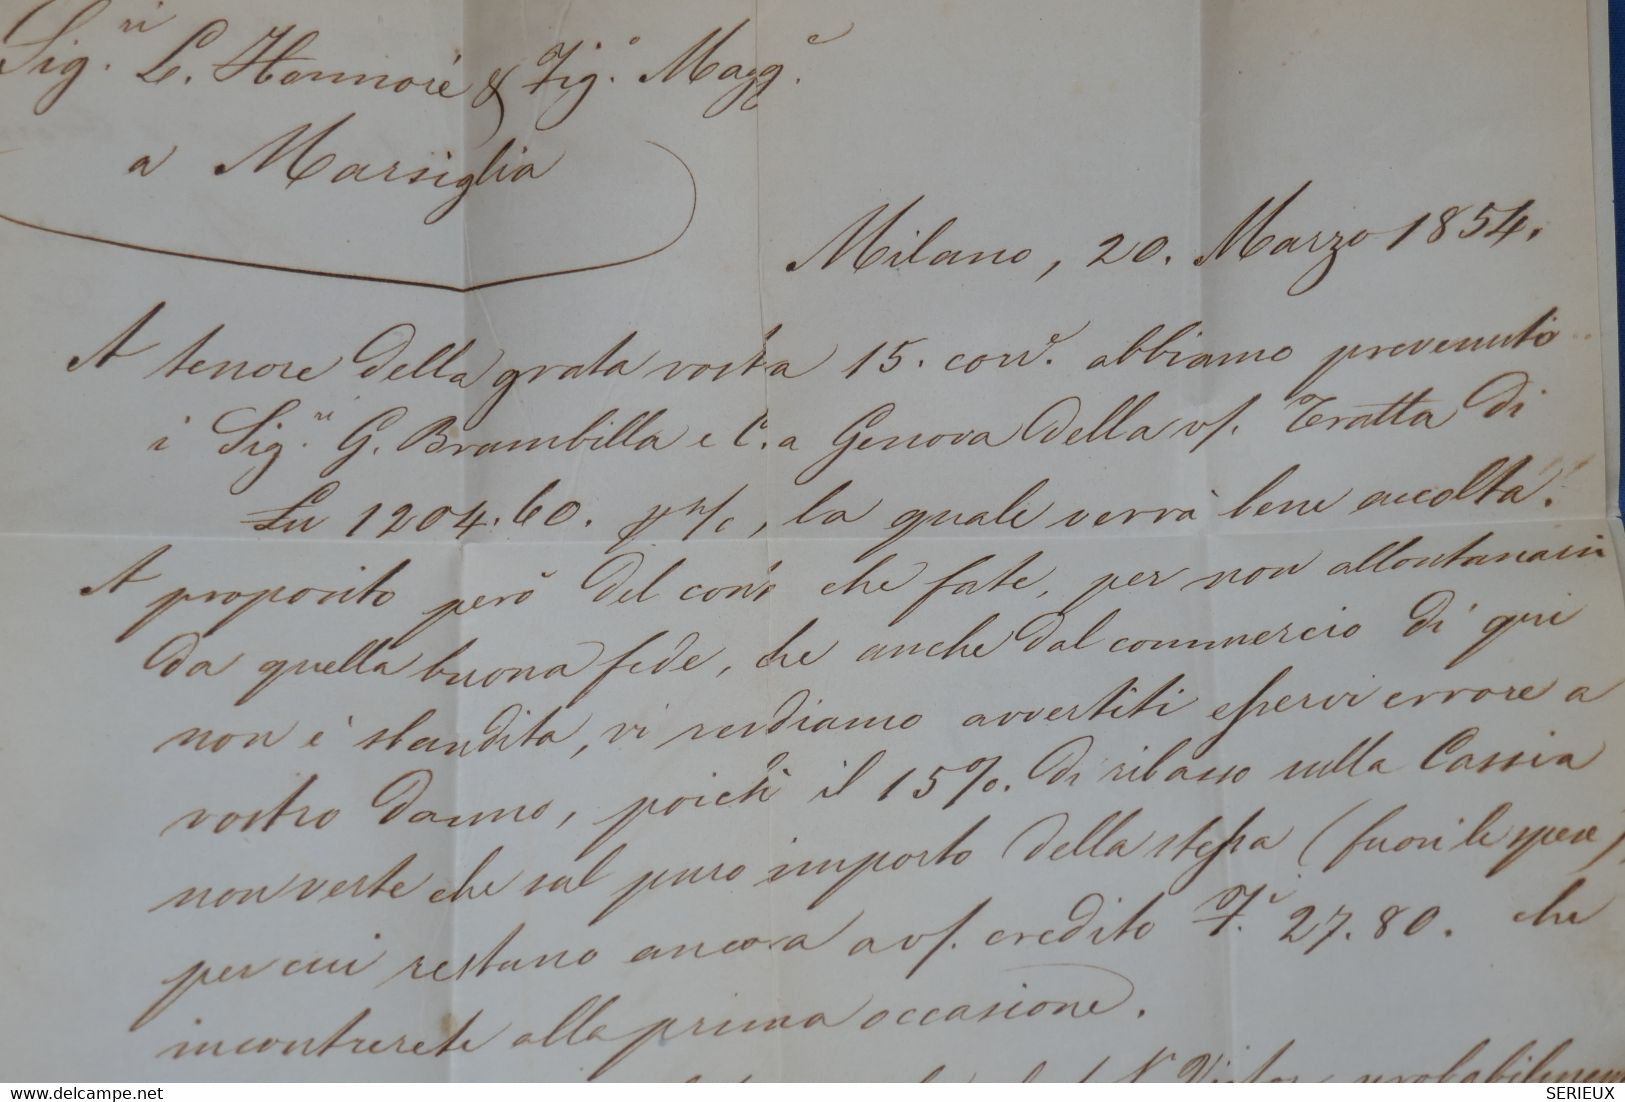 Sig.ri L. Honnoré & Fig.o Magg.e
a Marsiglia
Milano, 20. Marzo 1854.
A tenore della grata vosta 15. corr.e abbiamo prevenuto
i Sig.ri G. Brambilla e C. a Genova della v/. Tratta di
Ln 1204.60. p n/c, la quale verrà bene accolta.
A proposito però del conto che fate, per non allontanarci
da quella buona fede, che anche dal commercio di qui
non è sbandita, vi rendiamo avvertiti esservi errore a
vostro danno, poichè il 15%. di ribasso sulla Cassia
non verte che sul puro importo della stessa (fuori le spese)
per cui restano ancora a v/. credito F.i 27.80. che
incontrerete alla prima occasione.
probabilmen
delcampe.net
SERIEUX